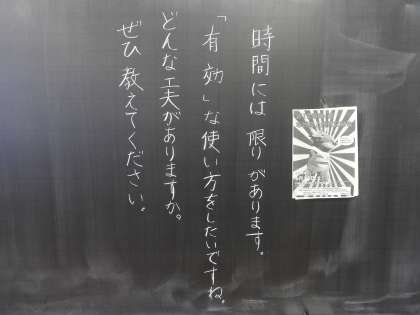 時間には限りがあります。
「有効」な使い方をしたいですね。
どんな工夫がありますか。
ぜひ教えてください。